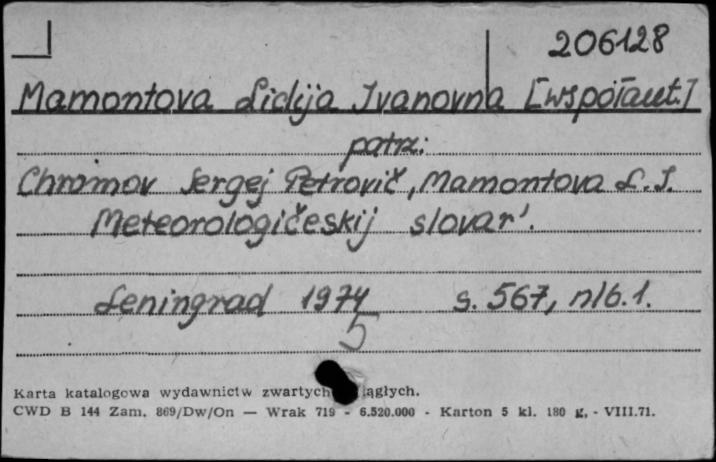 206128
Mamontova Lidija Ivanovna [współaut.]
patrz:
Chromov Sergej Petrovič, Mamontova L. I.
Meteorologičeskij slovar'.
Leningrad 1974 s. 567, nlb. 1.
5
Karta katalogowa wydawnictw zwartych iągłych.
CWD B 144 Zam. 869/Dw/On — Wrak 719 - 6.520.000 - Karton 5 kl. 180 g. - VIII.71.